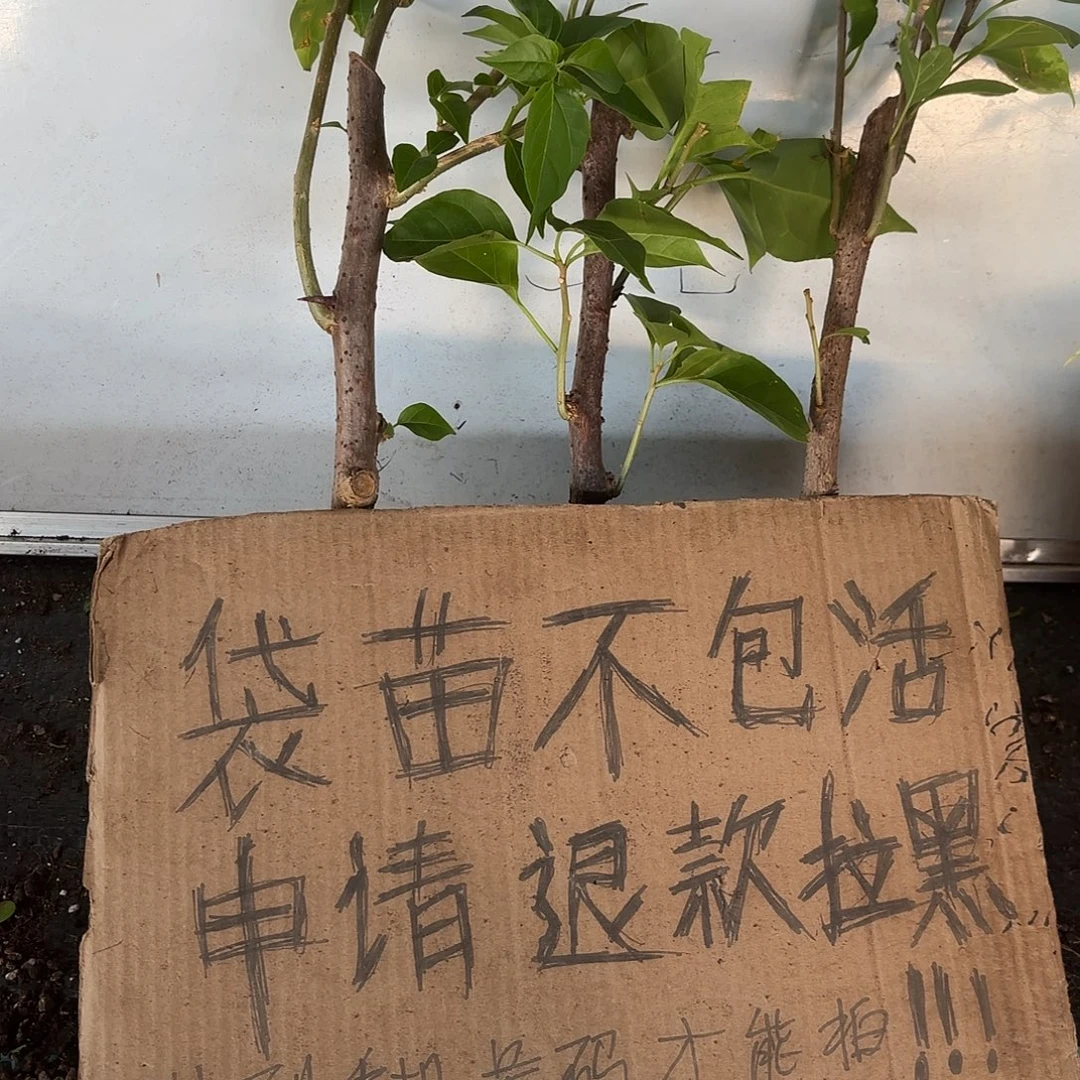 袋苗不包活
申请退款拉黑!!!
码才能拍